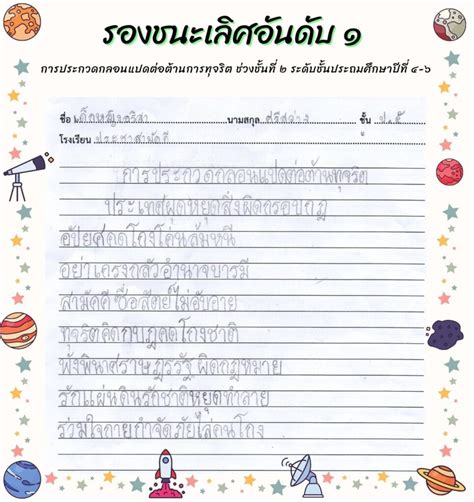 รองชนะเลิศอันดับ ๑
การประกวดกลอนแปดต่อต้านการทุจริต ช่วงชั้นที่ ๒ ระดับชั้นประถมศึกษาปีที่ ๔-๖
ชื่อ เด็กหญิงนริสา นามสกุล ศรีสว่าง ชั้น ป.๕
โรงเรียน ประชาสามัคคี
การประกวดกลอนแปดต่อต้านทุจริต
ประเทศผุดหยุดสิ่งผิดกรอบกฎ
อัปยศคดโกงโค่นล้มหนี
อย่าเกรงกลัวอำนาจบารมี
สามัคคีซื่อสัตย์ไม่อับอาย
ทุจริตคิดกบฎคดโกงชาติ
พังพินาศราษฎรรัฐผิดกฎหมาย
รักแผ่นดินรักชาติหยุดทำลาย
ร่วมใจกายกำจัดภัยไล่คนโกง